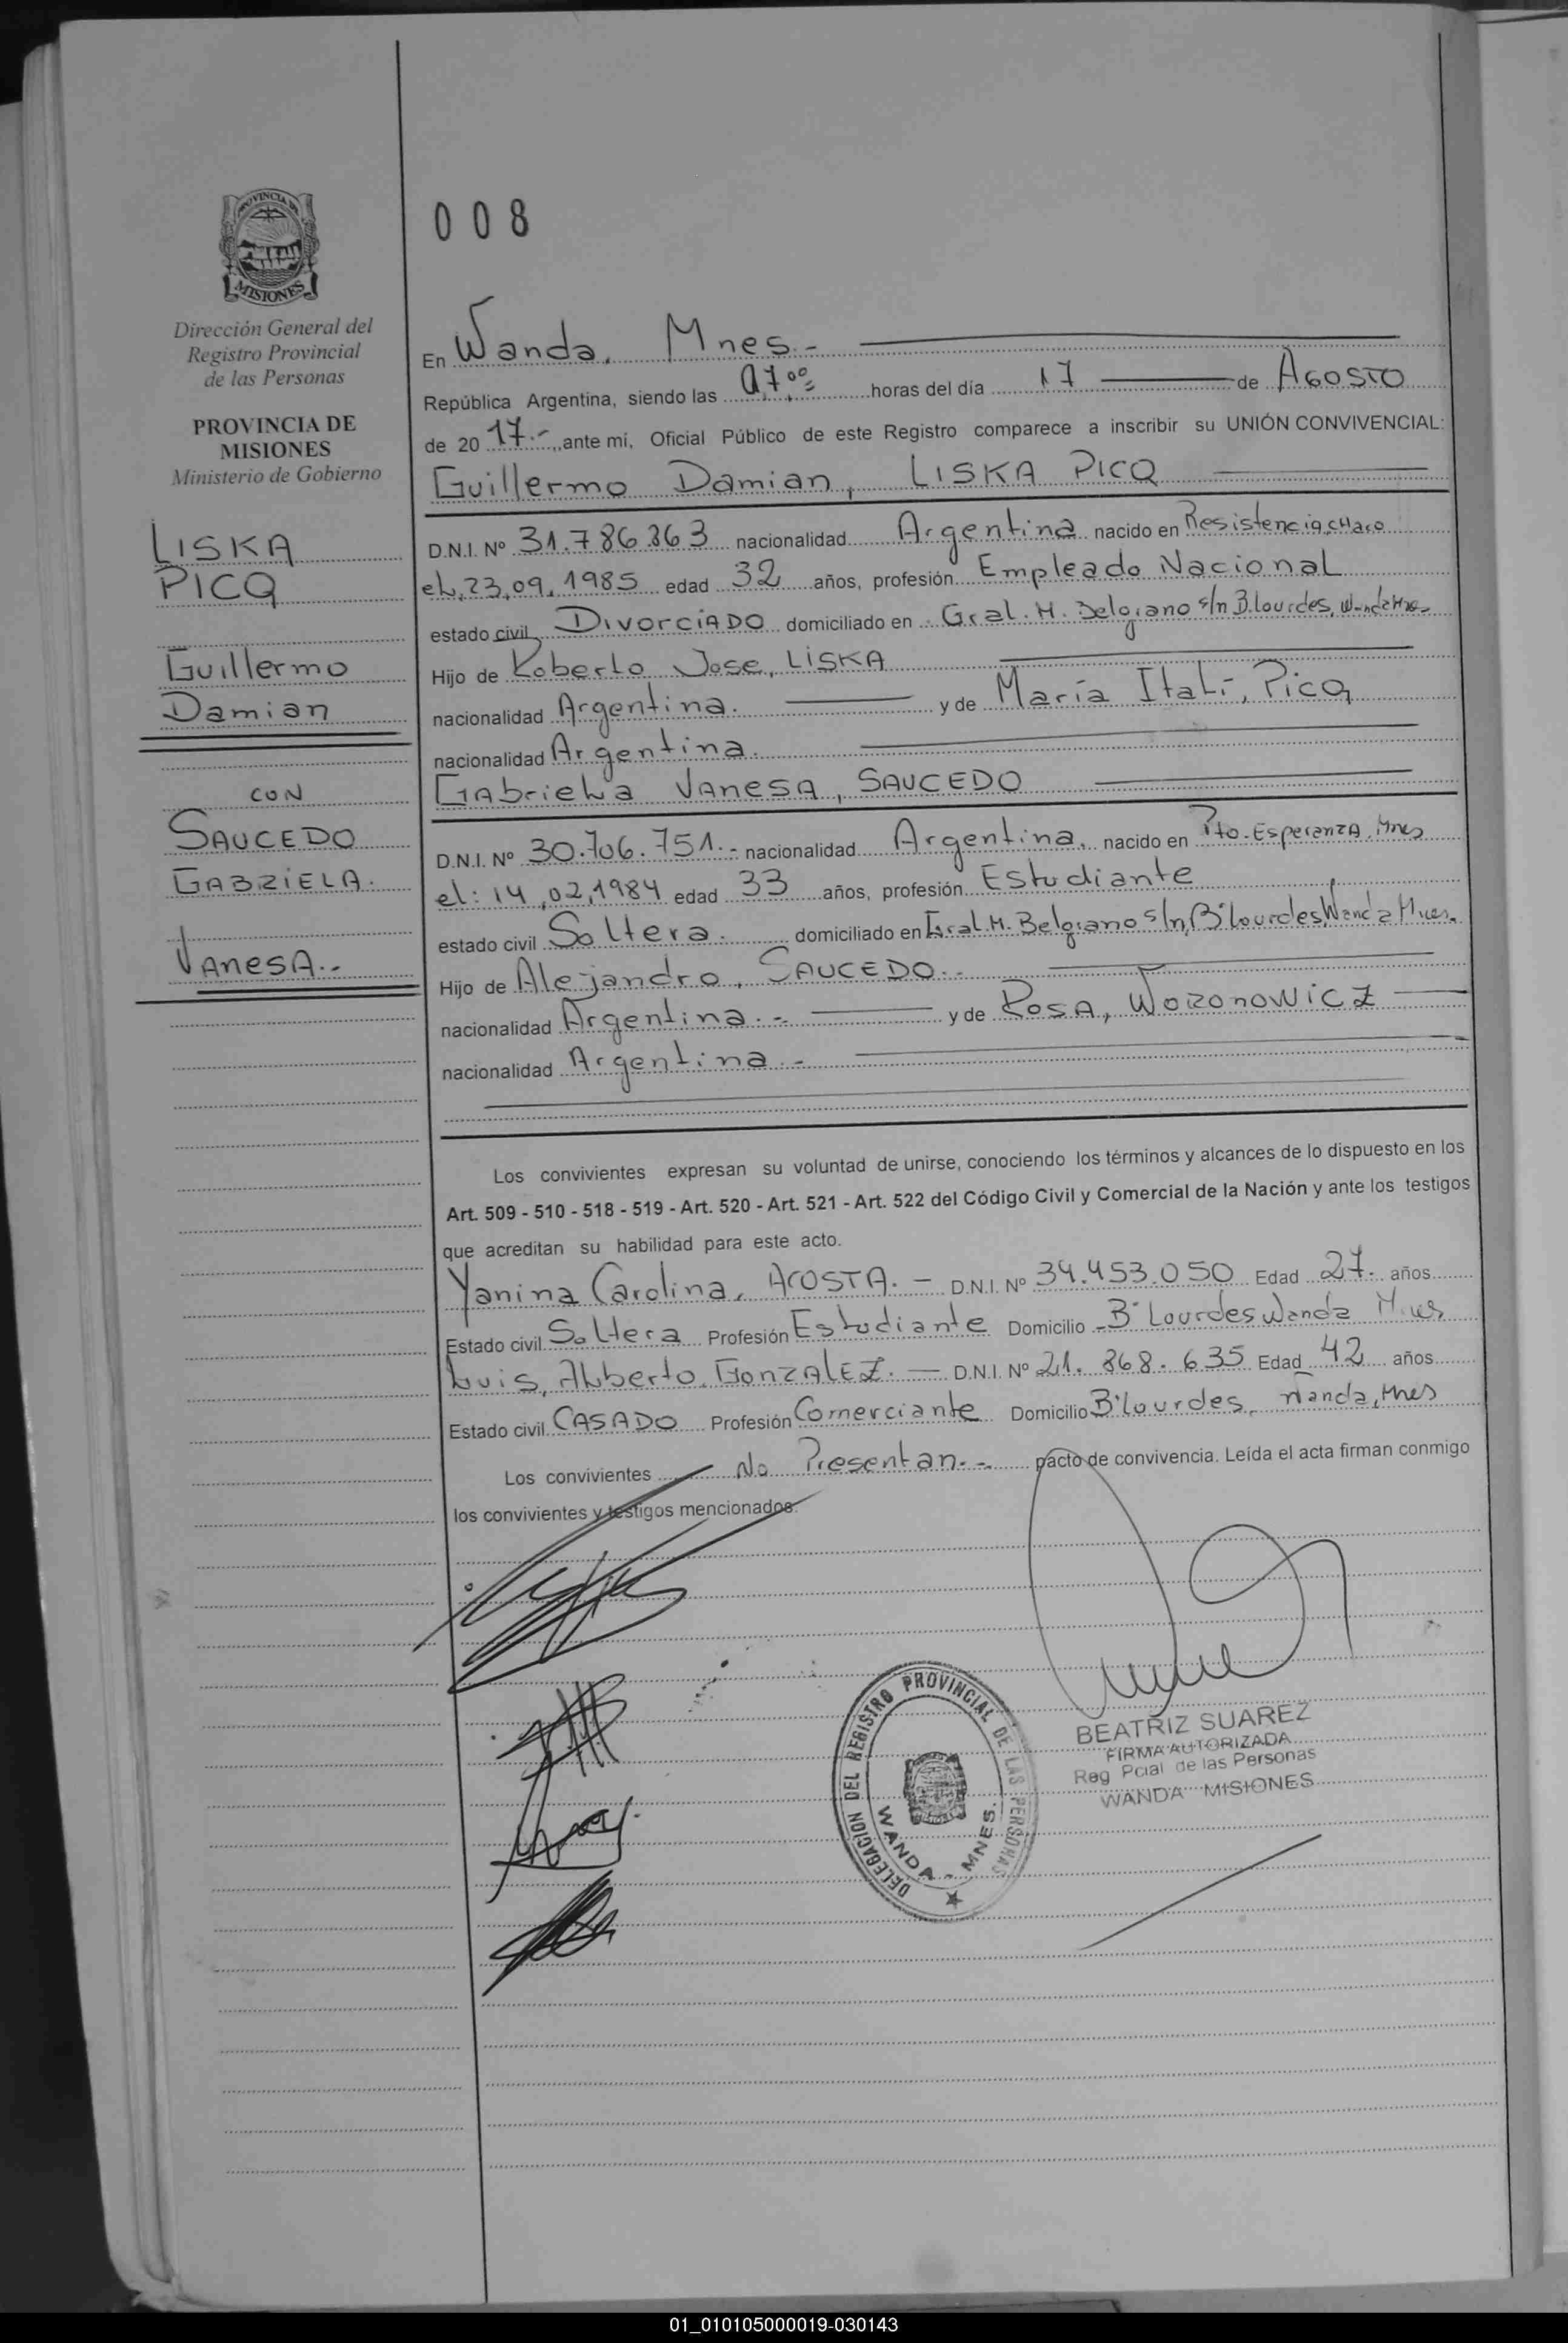 PROVINCIA DE
MISIONES
Dirección General del
Registro Provincial
de las Personas
PROVINCIA DE
MISIONES
Ministerio de Gobierno
LISKA
PICQ
Guillermo
Damian
CON
SAUCEDO
GABRIELA.
VANESA.-
008
En Wanda, Mnes.-
República Argentina, siendo las horas del día 17 de AGOSTO
de 2017.- ,ante mi, Oficial Público de este Registro comparece a inscribir su UNIÓN CONVIVENCIAL:
Guillermo Damian, LISKA PICQ
D.N.I. Nº 31.786.363 nacionalidad Argentina nacido en Resistencia, CHaco
el, 23,09,1985 edad 32 años, profesión Empleado Nacional
estado civil DIVORCIADO domiciliado en Gral. M. Belgrano s/n B. Lourdes, Wanda Mnes
Hijo de Roberto Jose, LISKA
nacionalidad Argentina. y de María Itatí, Picq
nacionalidad Argentina.
GAbriela VANESA, SAUCEDO
D.N.I. Nº 30.706.751.- nacionalidad Argentina, nacido en Pto. Esperanza, Mnes
el: 14,02,1984 edad 33 años, profesión Estudiante
estado civil Soltera. domiciliado en Gral. M. Belgrano s/n, B° Lourdes, Wanda Mnes.
Hijo de Alejandro, SAUCEDO.-
nacionalidad Argentina.- y de ROSA, WORONOWICZ
nacionalidad Argentina.-
Los convivientes expresan su voluntad de unirse, conociendo los términos y alcances de lo dispuesto en los
Art. 509 - 510 - 518 - 519 - Art. 520 - Art. 521 - Art. 522 del Código Civil y Comercial de la Nación y ante los testigos
que acreditan su habilidad para este acto.
Yanina Carolina, ACOSTA. - D.N.I. Nº 34.453.050 Edad 27. años
Estado civil Soltera Profesión Estudiante Domicilio B° Lourdes Wanda Mnes
Luis, Alberto, GONZALEZ. - D.N.I. Nº 21.868.635 Edad 42 años
Estado civil CASADO Profesión Comerciante Domicilio B° Lourdes, Wanda, Mnes
Los convivientes No Presentan.- pacto de convivencia. Leída el acta firman conmigo
los convivientes y testigos mencionados.
DELEGACION DEL REGISTRO PROVINCIAL DE LAS PERSONAS
WANDA - MNES.
BEATRIZ SUAREZ
FIRMA AUTORIZADA
Reg Pcial de las Personas
WANDA MISIONES
01_010105000019-030143